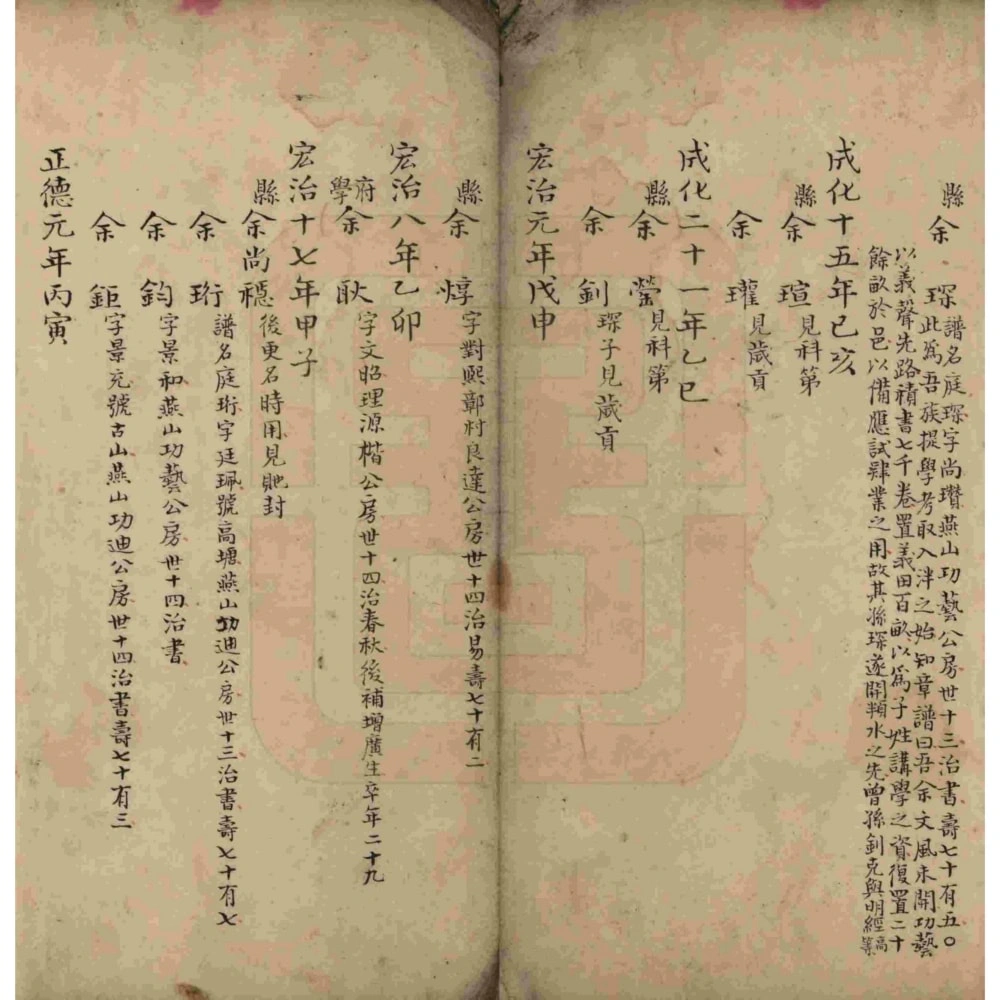 縣余　琛譜名庭琛字尚瓚燕山功藝公房世十三治書壽七十有五○
此為吾族提學考取入泮之始知章譜曰吾余文風未開功藝
以義聲先路積書七千卷置義田百畝以為子姓講學之資復置二十
餘畝於邑以備應試肄業之用故其孫琛遂開頖水之先曾孫釗克與明經高等
成化十五年己亥
縣余　瑄見科第
余　瓘見歲貢
成化二十一年乙巳
縣余　瑩見科第
余　釗琛子見歲貢
宏治元年戊申
縣余　焞字對熙鄣村良達公房世十四治易壽七十有二
宏治八年乙卯
府學余　耿字文昭理源楷公房世十四治春秋後補增廣生卒年二十九
宏治十七年甲子
縣余尚穩後更名時用見貤封
余　珩譜名庭珩字廷珮號高塘燕山功迪公房世十三治書壽七十有七
余　鈞字景和燕山功藝公房世十四治書
余　鉅字景充號古山燕山功迪公房世十四治書壽七十有三
正德元年丙寅